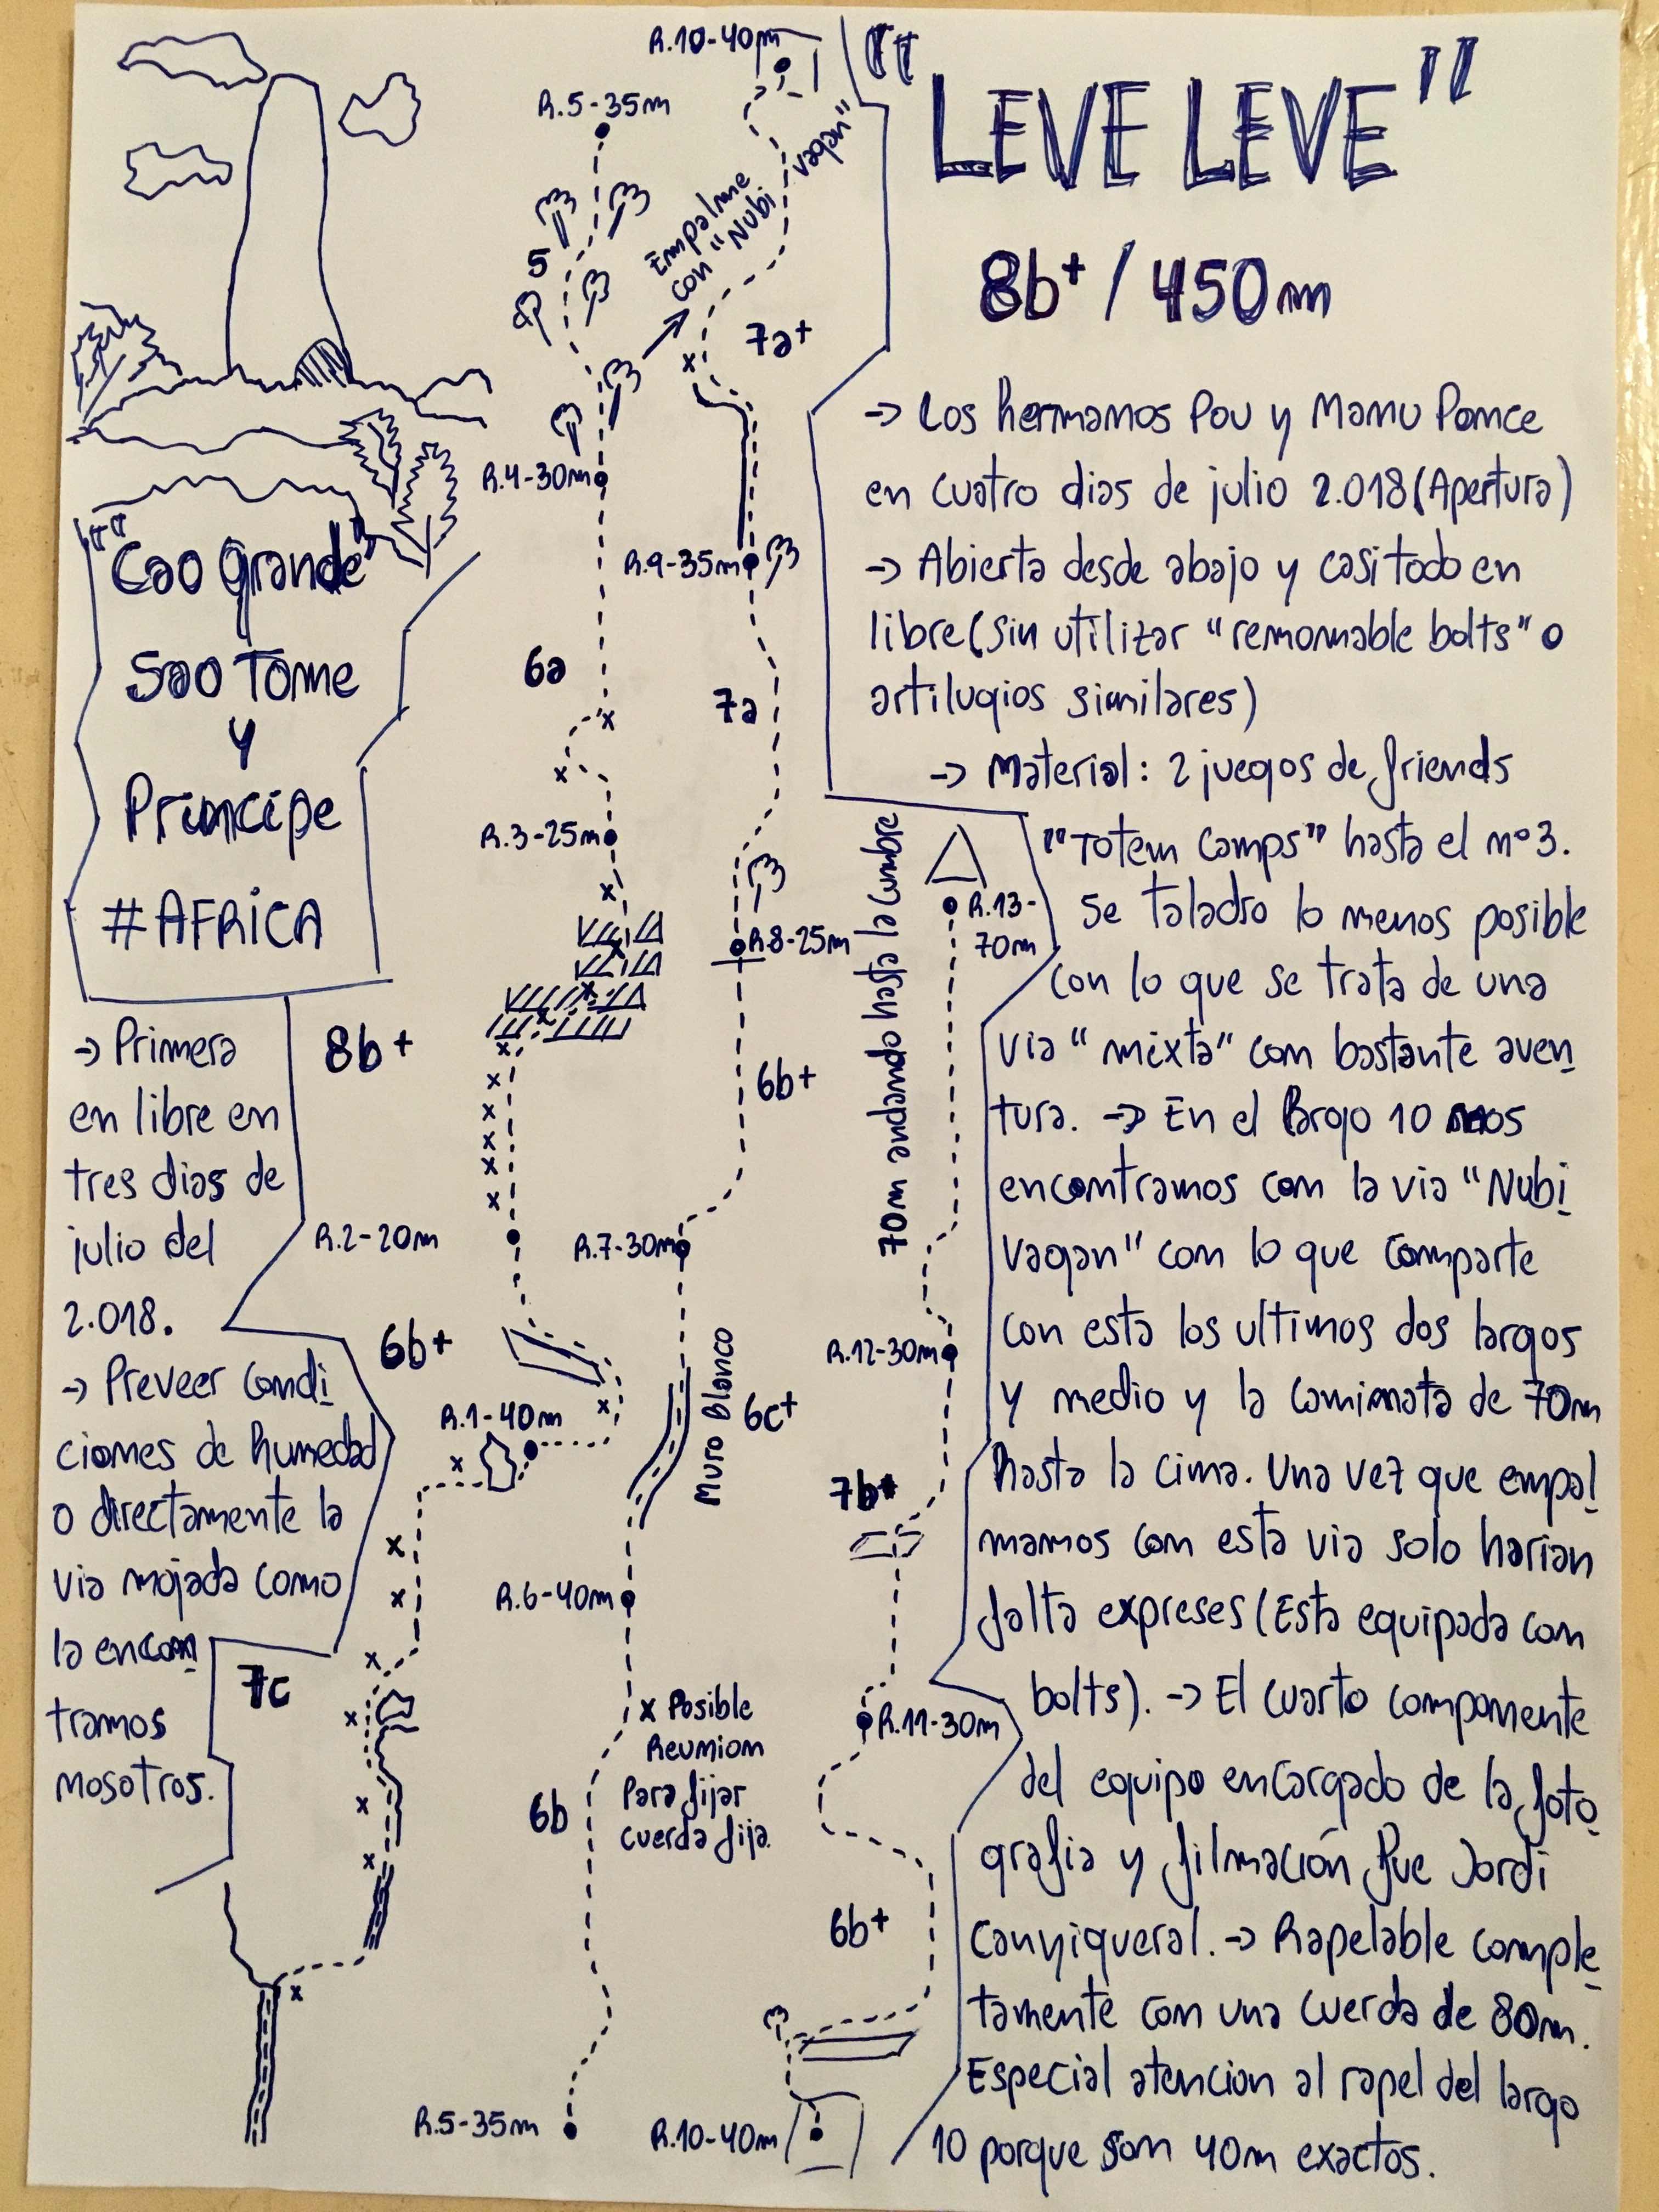 "LEVE LEVE"
8b+ / 450m
→ Los hermanos Pou y Manu Ponce
en cuatro dias de julio 2.018 (Apertura)
→ Abierta desde abajo y casi todo en
libre (sin utilizar "remonnable bolts" o
artilugios similares)
→ Material: 2 juegos de friends
"Totem Camps" hasta el nº 3.
Se taladro lo menos posible
con lo que se trata de una
via "mixta" con bastante aven
tura. → En el largo 10 nos
encontramos con la via "Nubi
Vagan" con lo que comparte
con esta los ultimos dos largos
y medio y la caminata de 70m
hasta la cima. Una vez que empal
mamos con esta via solo harian
falta expreses (Esta equipada con
bolts). → El cuarto componente
del equipo encargado de la foto
grafia y filmación fue Jordi
Canyigueral. → Rapelable comple
tamente con una cuerda de 80m.
Especial atencion al rapel del largo
10 porque son 40m exactos.
"Cao Grande"
Sao Tome
y
Principe
#AFRICA
→ Primera
en libre en
tres dias de
julio del
2.018.
→ Preveer condi
ciones de humedad
o directamente la
via mojada como
la encon
tramos
nosotros.
R.5-35m
5
R.4-30m
6a
R.3-25m
8b+
R.2-20m
6b+
R.1-40m
7c
R.10-40m
Empalme
con "Nubi
vagan"
7a+
R.9-35m
7a
R.8-25m
6b+
R.7-30m
Muro Blanco
6c+
R.6-40m
x Posible
Reunion
Para fijar
cuerda fija.
6b
R.5-35m
70m andando hasta la cumbre
R.13-
70m
R.12-30m
7b+
R.11-30m
6b+
R.10-40m